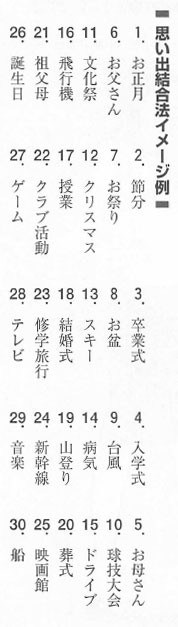 思い出結合法イメージ例
1. お正月
2. 節分
3. 卒業式
4. 入学式
5. お母さん
6. お父さん
7. お祭り
8. お盆
9. 台風
10. 球技大会
11. 文化祭
12. クリスマス
13. スキー
14. 病気
15. ドライブ
16. 飛行機
17. 授業
18. 結婚式
19. 山登り
20. 葬式
21. 祖父母
22. クラブ活動
23. 修学旅行
24. 新幹線
25. 映画館
26. 誕生日
27. ゲーム
28. テレビ
29. 音楽
30. 船